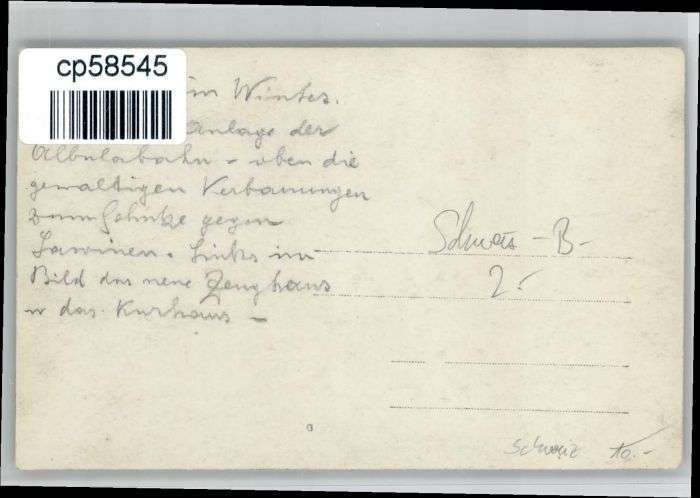 cp58545
im Winter.
Anlage der
Albulabahn - oben die
gewaltigen Verbauungen
zum Schutze gegen
Lawinen. Links im
Bild das neue Zeughaus
u das Kurhaus -
Schweiz - B -
2.-
Schweiz 10.-